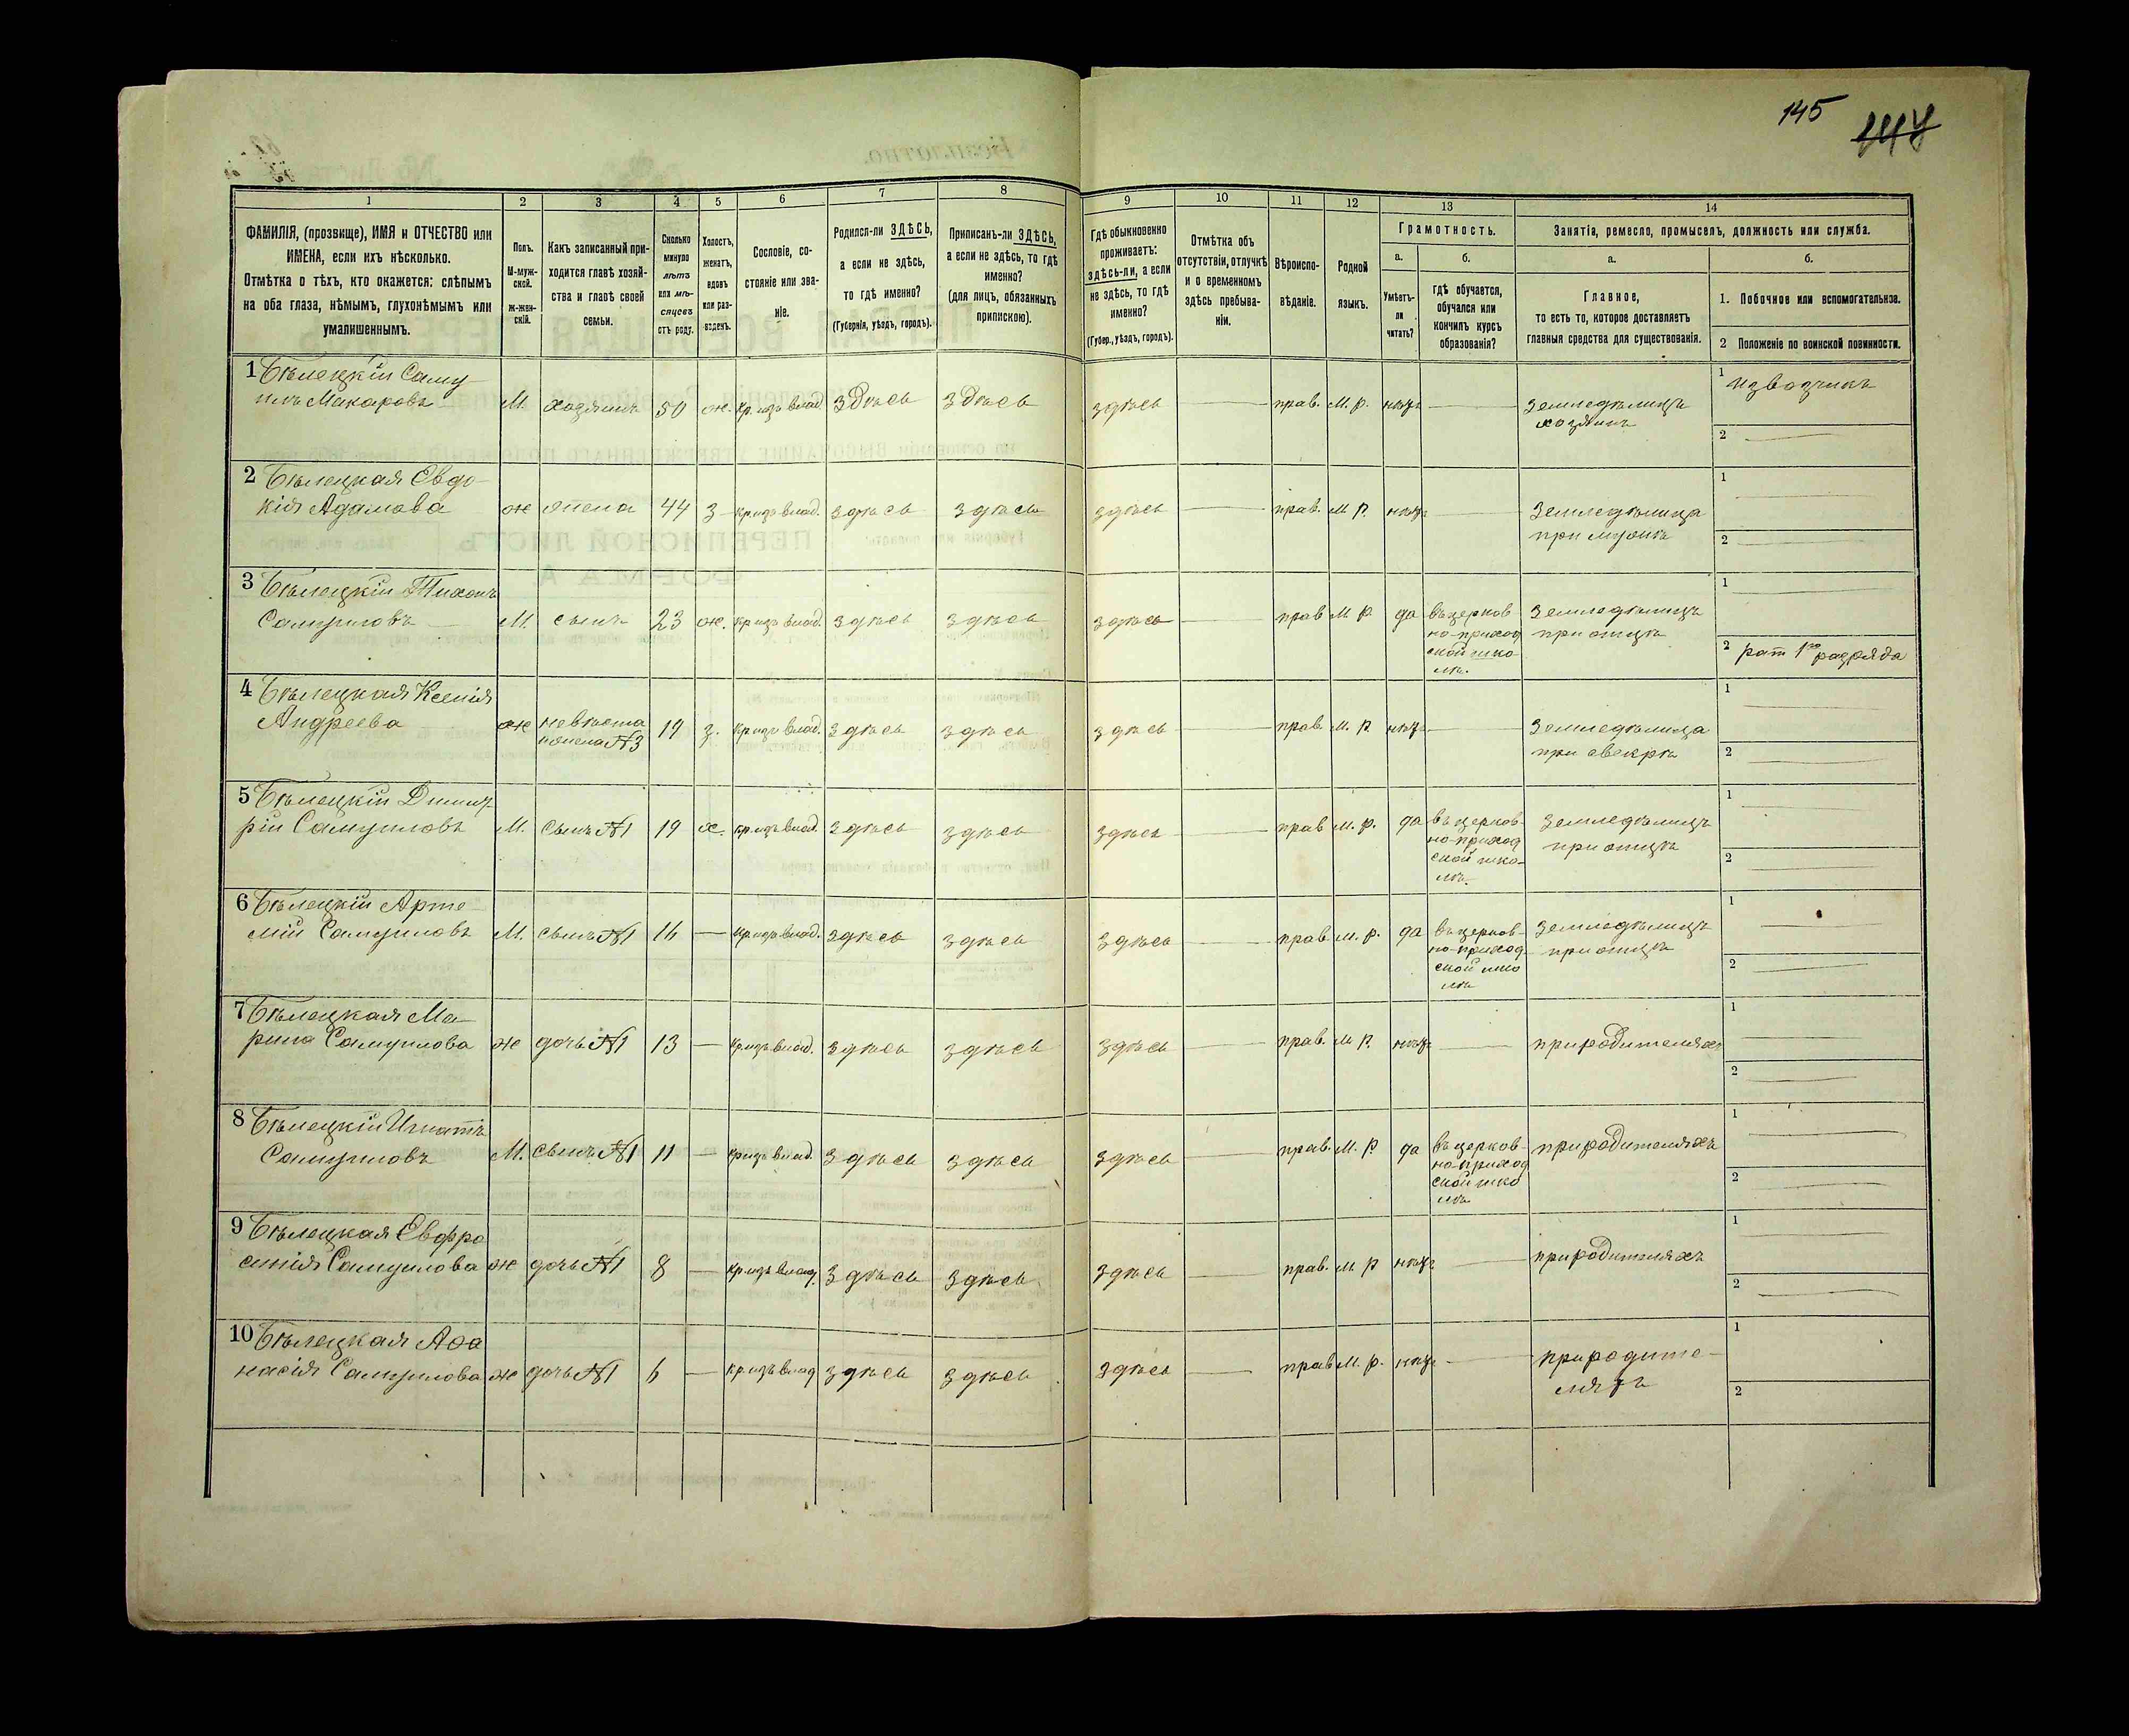 145
1
2
3
4
5
6
7
8
9
10
11
12
13
14
ФАМИЛІЯ, (прозвище), ИМЯ и ОТЧЕСТВО или
ИМЕНА, если ихъ нѣсколько.
Отмѣтка о тѣхъ, кто окажется: слѣпымъ
на оба глаза, нѣмымъ, глухонѣмымъ или
умалишеннымъ.
Полъ.
М-муж-
ской.
ж-жен-
скій.
Какъ записанный при-
ходится главѣ хозяй-
ства и главѣ своей
семьи.
Сколько
минуло
лѣтъ
или мѣ-
сяцевъ
отъ роду.
Холостъ,
женатъ,
вдовъ
или раз-
веденъ.
Сословіе, со-
стояніе или зва-
ніе.
Родился-ли ЗДѢСЬ,
а если не здѣсь,
то гдѣ именно?
(Губернія, уѣздъ, городъ).
Приписанъ-ли ЗДѢСЬ,
а если не здѣсь, то гдѣ
именно?
(для лицъ, обязанныхъ
припискою).
Гдѣ обыкновенно
проживаетъ:
здѣсь-ли, а если
не здѣсь, то гдѣ
именно?
(Губер., уѣздъ, городъ).
Отмѣтка объ
отсутствіи, отлучкѣ
и о временномъ
здѣсь пребыва-
ніи.
Вѣроиспо-
вѣданіе.
Родной
языкъ.
Грамотность.
а.
Умѣетъ-
ли
читать?
б.
гдѣ обучается,
обучался или
кончилъ курсъ
образованія?
Занятія, ремесло, промыселъ, должность или служба.
а.
Главное,
то есть то, которое доставляетъ
главныя средства для существованія.
б.
1. Побочное или вспомогательное.
2 Положеніе по воинской повинности.
1 Бѣлецкій Саму
илъ Макаровъ М. хозяинъ 50 ж. кр. изъ влад. здѣсь здѣсь здѣсь — прав. М. р. нѣтъ — земледѣлецъ
хозяинъ
1 извозчикъ
2 —
2 Бѣлецкая Евдо-
кія Адамова ж жена 44 з кр изъ влад. здѣсь здѣсь здѣсь — прав. М р. нѣтъ — земледѣлица
при мужѣ
1 —
2 —
3 Бѣлецкій Тихонъ
Самуиловъ М. сынъ 23 ж. кр изъ влад. здѣсь здѣсь здѣсь — прав М р. да въ церков-
но-приход
ской шко-
лѣ.
земледѣлецъ
при отцѣ
1 —
2 рат 1го разряда
4 Бѣлецкая Ксенія
Андреева ж невѣста
жена №3
19 з. кр изъ влад. здѣсь здѣсь здѣсь — прав. М. р. нѣтъ — земледѣлица
при свекрѣ
1 —
2 —
5 Бѣлецкій Димит-
рій Самуиловъ М. сынъ №1 19 х. кр изъ влад. здѣсь здѣсь здѣсь — прав М. р. да въ церков-
но-приход
ской шко-
лѣ.
земледѣлецъ
при отцѣ
1 —
2 —
6 Бѣлецкій Арте-
мій Самуиловъ М. сынъ №1 16 — кр изъ влад. здѣсь здѣсь здѣсь — прав М. р. да въ церков-
но-приход-
ской шко
лѣ
земледѣлецъ
при отцѣ
1 —
2 —
7 Бѣлецкая Ма-
рина Самуилова ж дочь №1 13 — кр изъ влад. здѣсь здѣсь здѣсь — прав. М р. нѣтъ — при родителяхъ
1 —
2 —
8 Бѣлецкій Игнатъ
Самуиловъ М. сынъ №1 11 — кр изъ влад. здѣсь здѣсь здѣсь — прав. М. р да въ церков-
но-приход
ской шко
лѣ
при родителяхъ
1 —
2 —
9 Бѣлецкая Евфро
синія Самуилова ж дочь №1 8 — кр изъ влад. здѣсь здѣсь здѣсь — прав. М р нѣтъ — при родителяхъ
1 —
2 —
10 Бѣлецкая Афа
насія Самуилова ж дочь №1 6 — кр изъ влад здѣсь здѣсь здѣсь — прав М. р. нѣтъ — при родите-
ляхъ
1
2